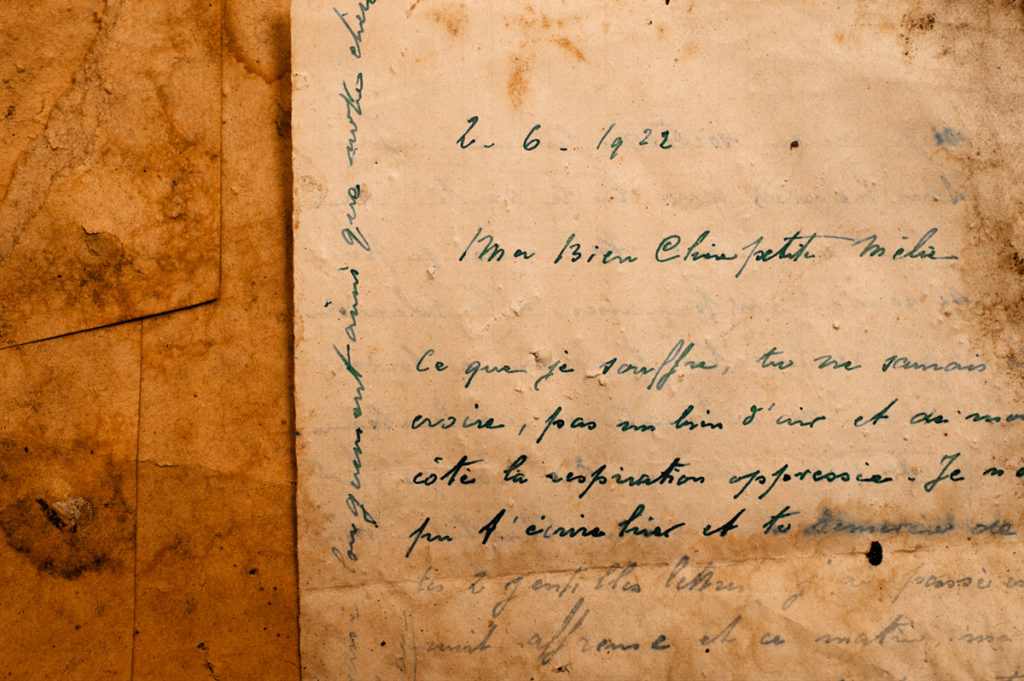 2. 6. 1922
Ma Bien Chère petite Mélie
Ce que je souffre, tu ne saurais
croire, pas un brin d'air et de mon
côté la respiration oppressée. Je n'ai
pu t'écrire hier et te remercier de
tes 2 gentilles lettres j'ai passé
nuit affreuse et ce matin ma
longuement ainsi que notre chère